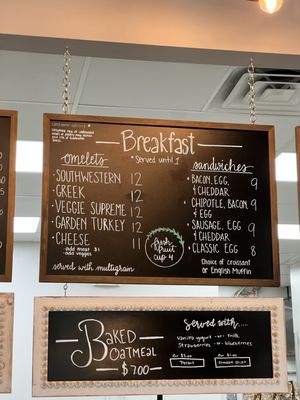 Breakfast
Served until 1
omelets
SOUTHWESTERN 12
GREEK 12
VEGGIE SUPREME 12
GARDEN TURKEY 12
CHEESE 11
• Add meat $1
• add veggies
served with multigrain
fresh
fruit
cup 4
sandwiches
• BACON, EGG, 9
& CHEDDAR
• CHIPOTLE, BACON, 9
& EGG
• SAUSAGE, EGG 9
& CHEDDAR
• CLASSIC EGG 8
Choice of croissant
or English Muffin
BAKED
OATMEAL
$7.00
Served with....
Vanilla yogurt - or - milk
Strawberries - or - blueberries